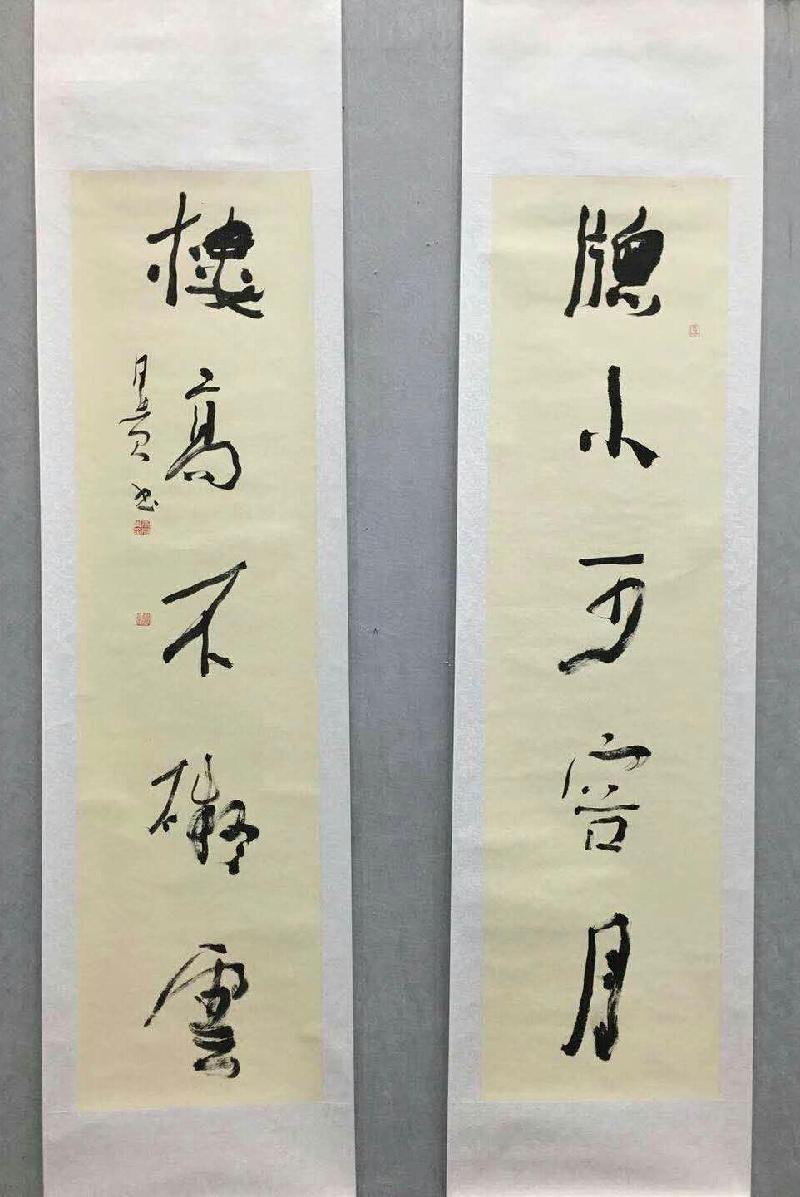 牕小可容月
樓高不礙雲